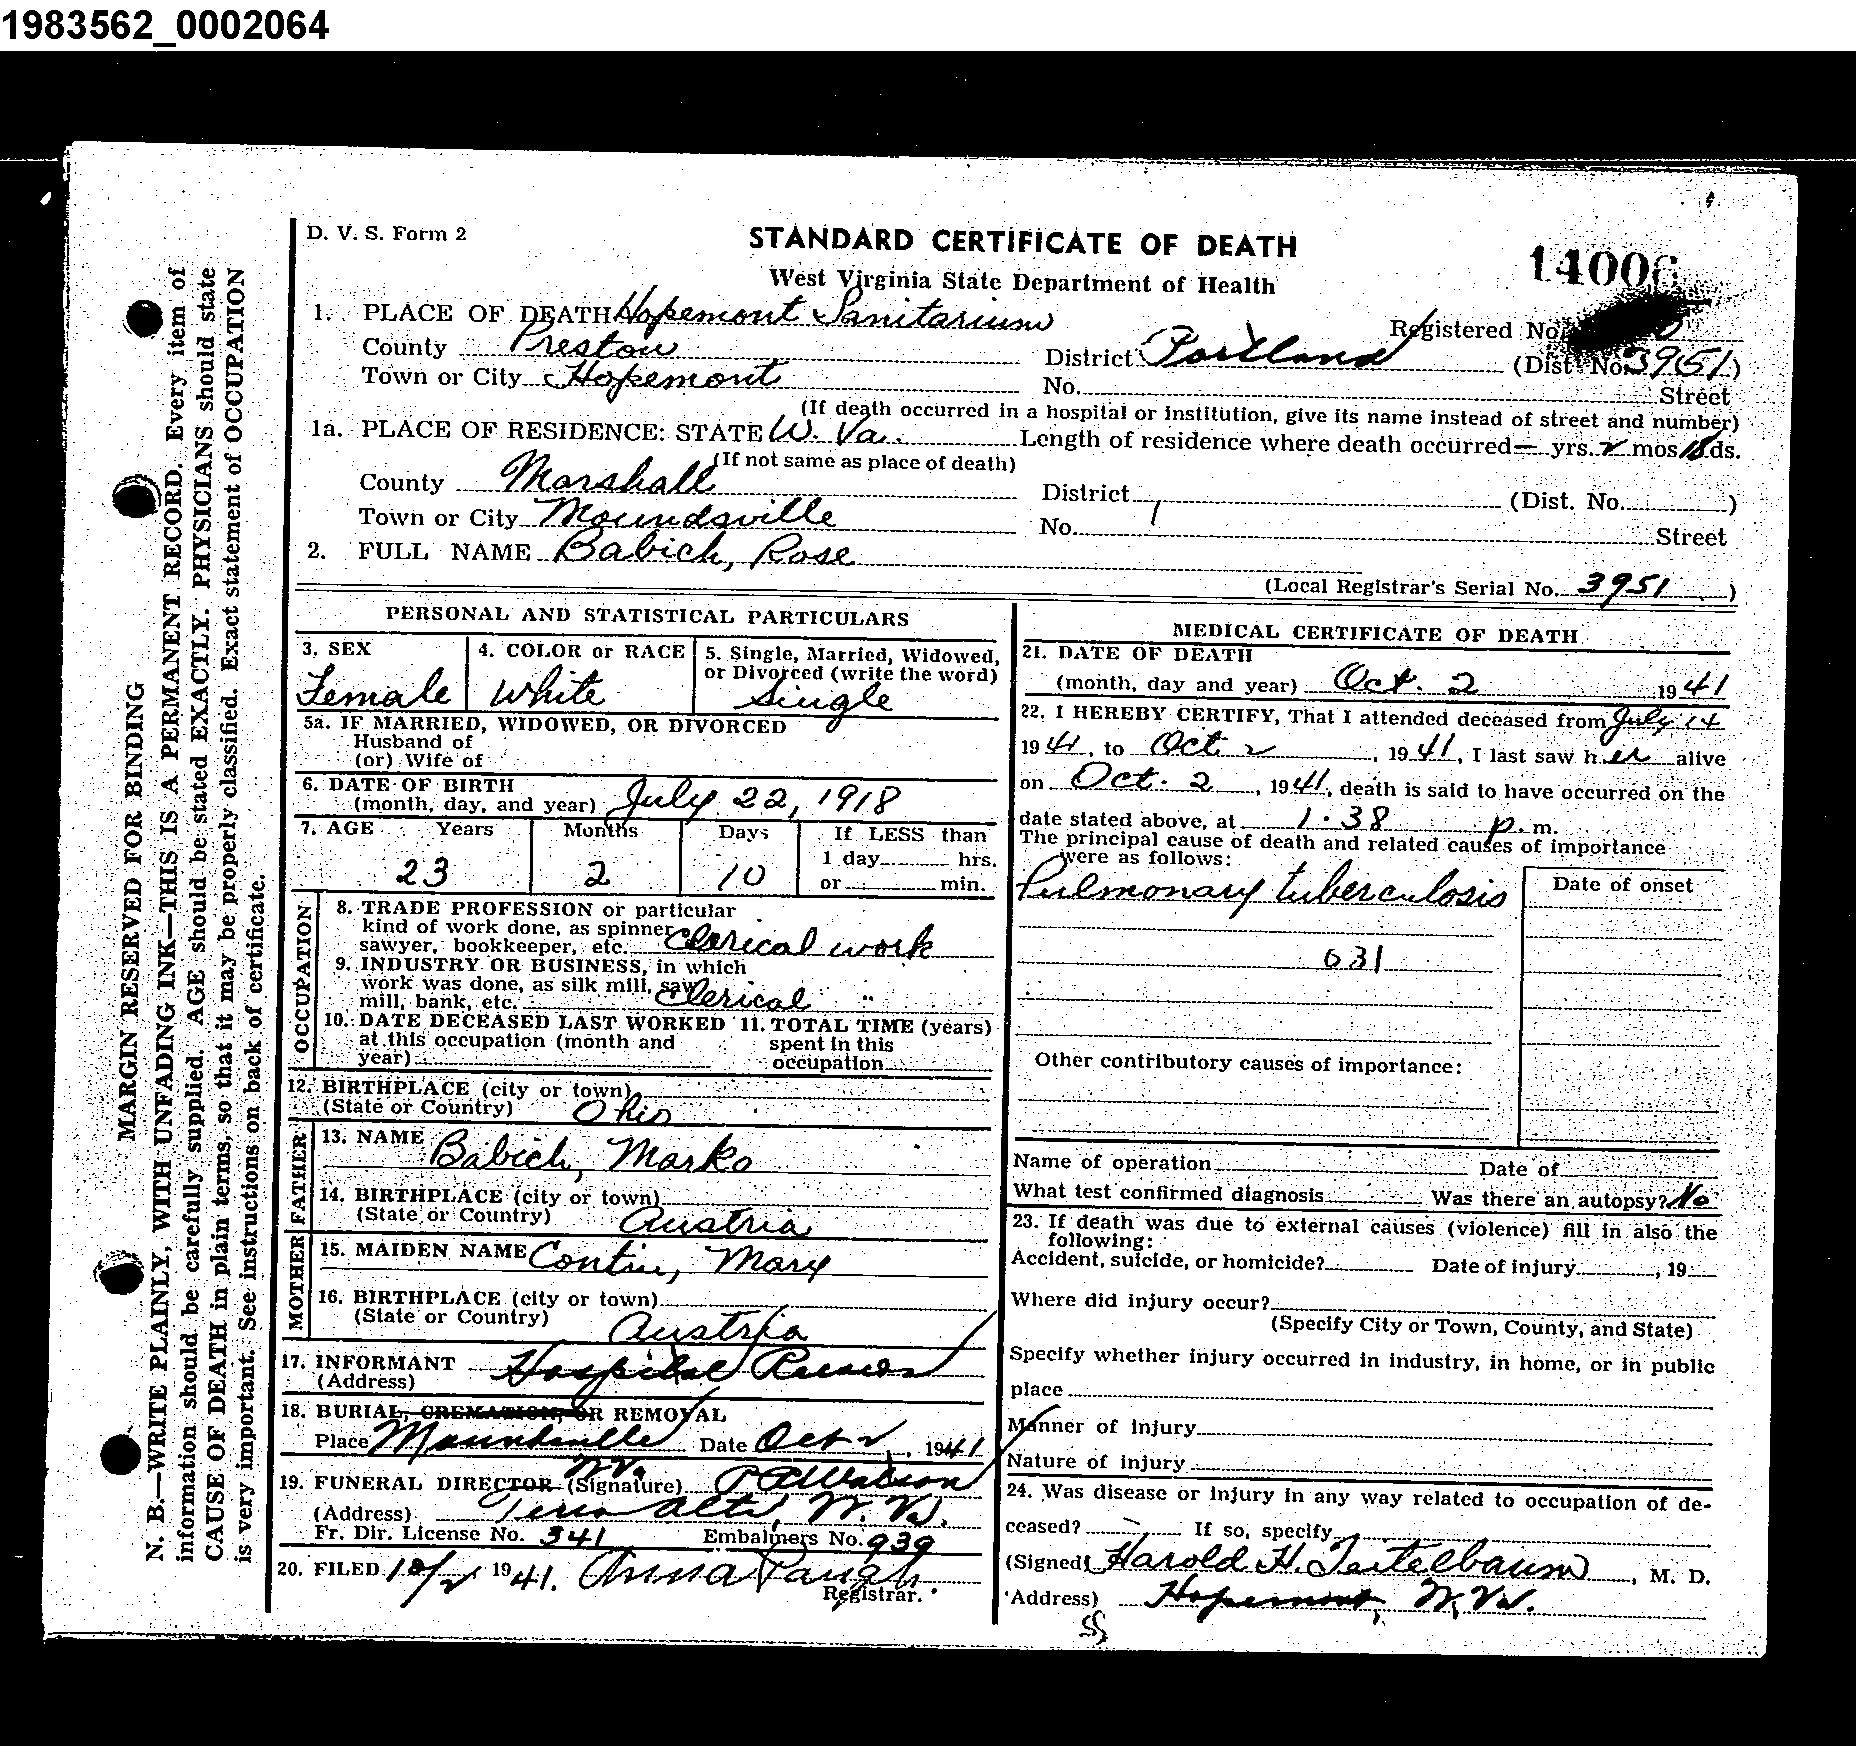 1983562_0002064
D. V. S. Form 2
STANDARD CERTIFICATE OF DEATH
14006
West Virginia State Department of Health
1. PLACE OF DEATH Hopemont Sanitarium
Registered No.
County Preston District Portland (Dist. No. 3951)
Town or City Hopemont No. Street
(If death occurred in a hospital or institution, give its name instead of street and number)
1a. PLACE OF RESIDENCE: STATE W. Va. Length of residence where death occurred — yrs. 2 mos 18 ds.
(If not same as place of death)
County Marshall District (Dist. No. )
Town or City Moundsville No. Street
2. FULL NAME Babich, Rose
(Local Registrar's Serial No. 3951 )
PERSONAL AND STATISTICAL PARTICULARS
3. SEX
Female
4. COLOR or RACE
White
5. Single, Married, Widowed,
or Divorced (write the word)
Single
5a. IF MARRIED, WIDOWED, OR DIVORCED
Husband of
(or) Wife of
6. DATE OF BIRTH
(month, day, and year) July 22, 1918
7. AGE Years Months Days If LESS than
1 day hrs.
23 2 10 or min.
OCCUPATION
8. TRADE PROFESSION or particular
kind of work done, as spinner
sawyer, bookkeeper, etc. Clerical work
9. INDUSTRY OR BUSINESS, in which
work was done, as silk mill, saw
mill, bank, etc. Clerical "
10. DATE DECEASED LAST WORKED
at this occupation (month and
year)
11. TOTAL TIME (years)
spent in this
occupation
12. BIRTHPLACE (city or town)
(State or Country) Ohio
FATHER
13. NAME Babich, Marko
14. BIRTHPLACE (city or town)
(State or Country) Austria
MOTHER
15. MAIDEN NAME Contin, Mary
16. BIRTHPLACE (city or town)
(State or Country) Austria
17. INFORMANT Hospital Record
(Address)
18. BURIAL, CREMATION, OR REMOVAL
Place Moundsville Date Oct 2, 1941
W.Va.
19. FUNERAL DIRECTOR (Signature) Watson
(Address) Terra Alta, W. Va.
Fr. Dir. License No. 341 Embalmers No. 939
20. FILED 10/2 1941. Anna Paugh
Registrar.
MEDICAL CERTIFICATE OF DEATH
21. DATE OF DEATH
(month, day and year) Oct. 2 1941
22. I HEREBY CERTIFY, That I attended deceased from July 14
1941, to Oct 2, 1941, I last saw her alive
on Oct. 2, 1941, death is said to have occurred on the
date stated above, at 1.38 p. m.
The principal cause of death and related causes of importance
were as follows:
Date of onset
Pulmonary tuberculosis
031
Other contributory causes of importance:
Name of operation Date of
What test confirmed diagnosis Was there an autopsy? No
23. If death was due to external causes (violence) fill in also the
following:
Accident, suicide, or homicide? Date of injury , 19
Where did injury occur?
(Specify City or Town, County, and State)
Specify whether injury occurred in industry, in home, or in public
place
Manner of injury
Nature of injury
24. Was disease or injury in any way related to occupation of de-
ceased? If so, specify
(Signed) Harold H. Teitelbaum, M. D.
Address) Hopemont, W. Va.
MARGIN RESERVED FOR BINDING
N. B.—WRITE PLAINLY, WITH UNFADING INK—THIS IS A PERMANENT RECORD. Every item of
information should be carefully supplied. AGE should be stated EXACTLY. PHYSICIANS should state
CAUSE OF DEATH in plain terms, so that it may be properly classified. Exact statement of OCCUPATION
is very important. See instructions on back of certificate.